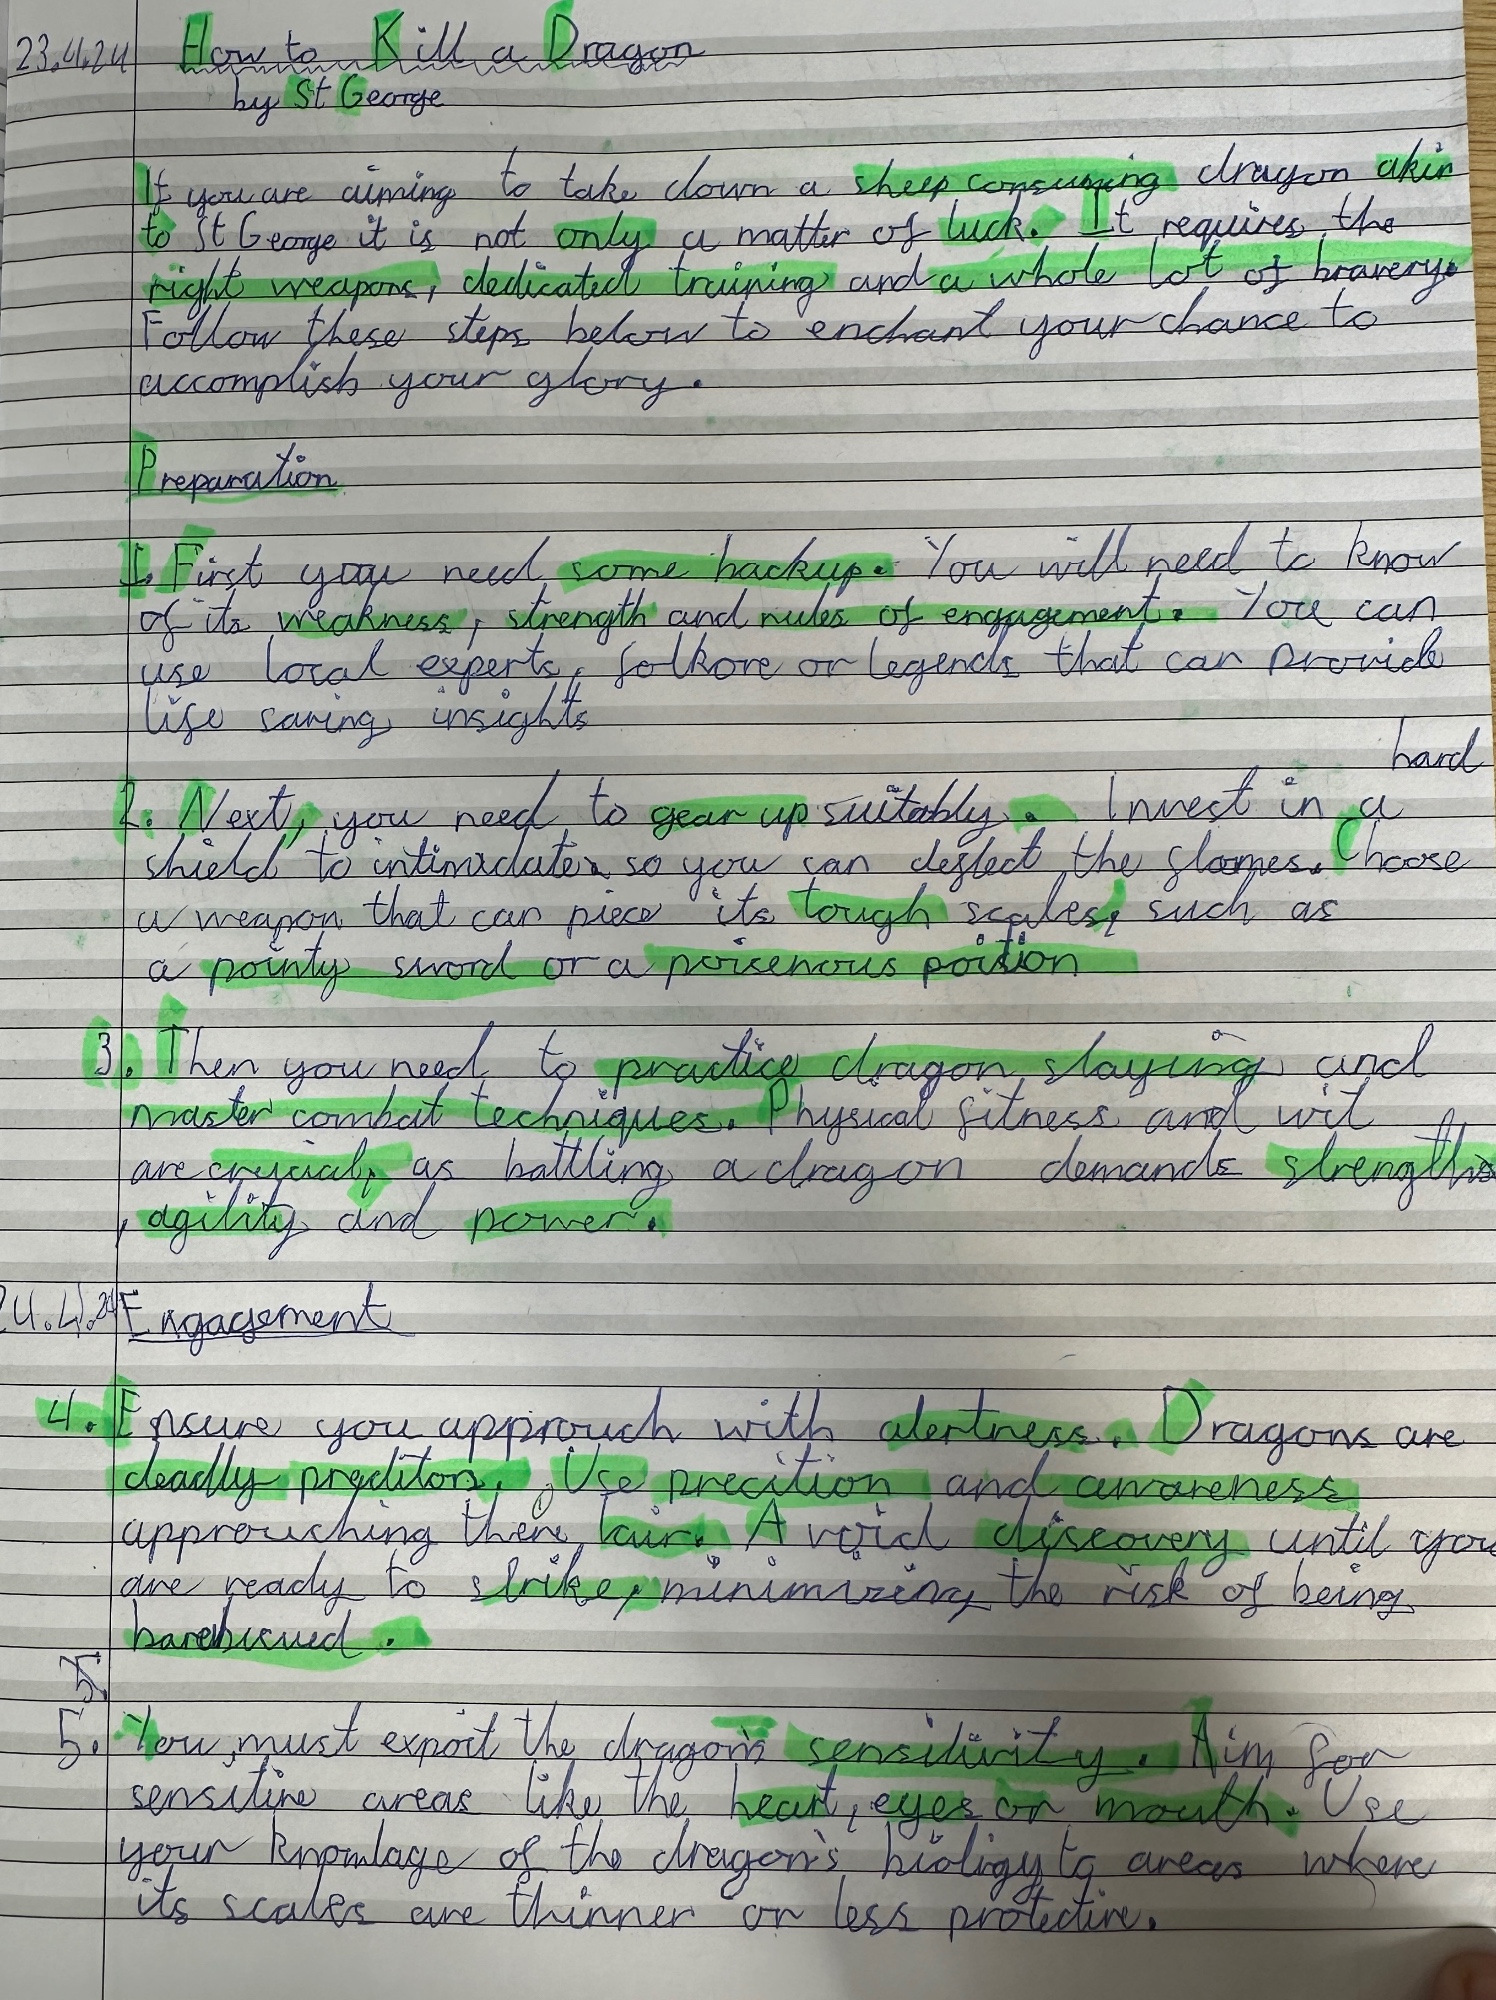 23.4.24 How to Kill a Dragon
by St George
If you are aiming to take down a sheep consuming dragon akin
to St George it is not only a matter of luck. It requires the
right weapons, dedicated training and a whole lot of bravery.
Follow these steps below to enchant your chance to
accomplish your glory.
Preparation
1. First you need some backup. You will need to know
of its weakness, strength and rules of engagement. You can
use local experts, folkore or legends that can provide
life saving insights
hard
2. Next, you need to gear up suitably. Invest in a
shield to intimidate so you can deflect the flames. Choose
a weapon that can piece its tough scales, such as
a pointy sword or a poisenous poition
3. Then you need to practice dragon slaying and
master combat techniques. Physical fitness and wit
are crucial, as battling a dragon demands strength
, agility and power.
24.4.24 Engagement
4. Ensure you approuch with alertness. Dragons are
deadly preditors. Use precition and awareness
approuching there lair. Avoid discovery until you
are ready to strike, minimizing the risk of being
5.
5. You must expoit the dragon's sensitivity. Aim for
sensitive areas like the heart, eyes or mouth. Use
your knowlage of the dragon's bioligy to areas where
its scales are thinner or less protective.